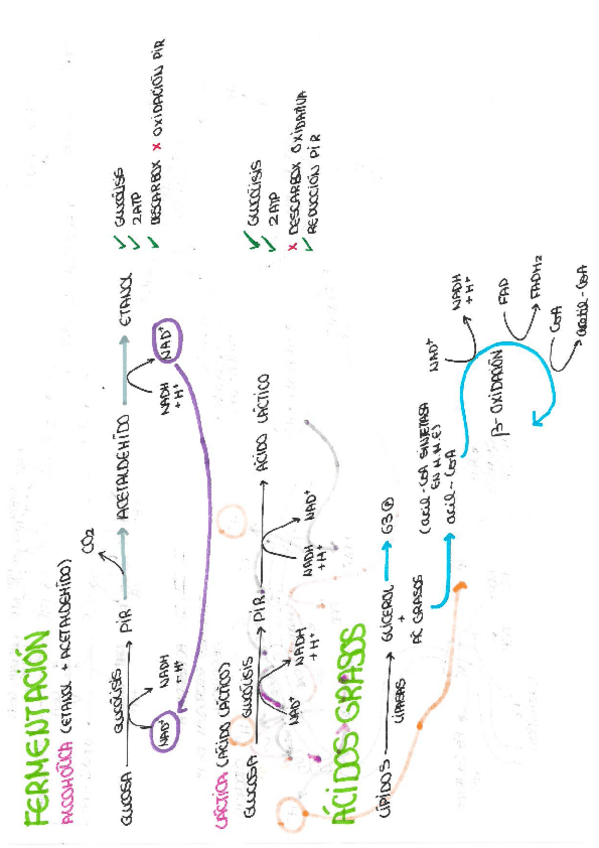 FERMENTACIÓN
ALCOHÓLICA (ETANOL + ACETALDEHÍDO)
GLUCOSA GLUCÓLISIS PIR CO₂ ACETALDEHÍDO ETANOL
NAD⁺ NADH + H⁺ NADH + H⁺ NAD⁺
✓ GLUCÓLISIS
✓ 2ATP
✓ DESCARBOX x OXIDACIÓN PIR
LÁCTICA (ÁCIDO LÁCTICO)
GLUCOSA GLUCÓLISIS PIR ÁCIDO LÁCTICO
NAD⁺ NADH + H⁺ NADH + H⁺ NAD⁺
✓ GLUCÓLISIS
✓ 2ATP
x DESCARBOX OXIDATIVA
✓ REDUCCIÓN PIR
ÁCIDOS GRASOS
LÍPIDOS LIPASAS GLICEROL G3P
+
ÁC GRASOS
(acil-CoA SINTETASA
EN M.M.E)
acil~CoA
β-OXIDACIÓN
NAD⁺
NADH + H⁺
FAD
FADH₂
CoA
acetil-CoA